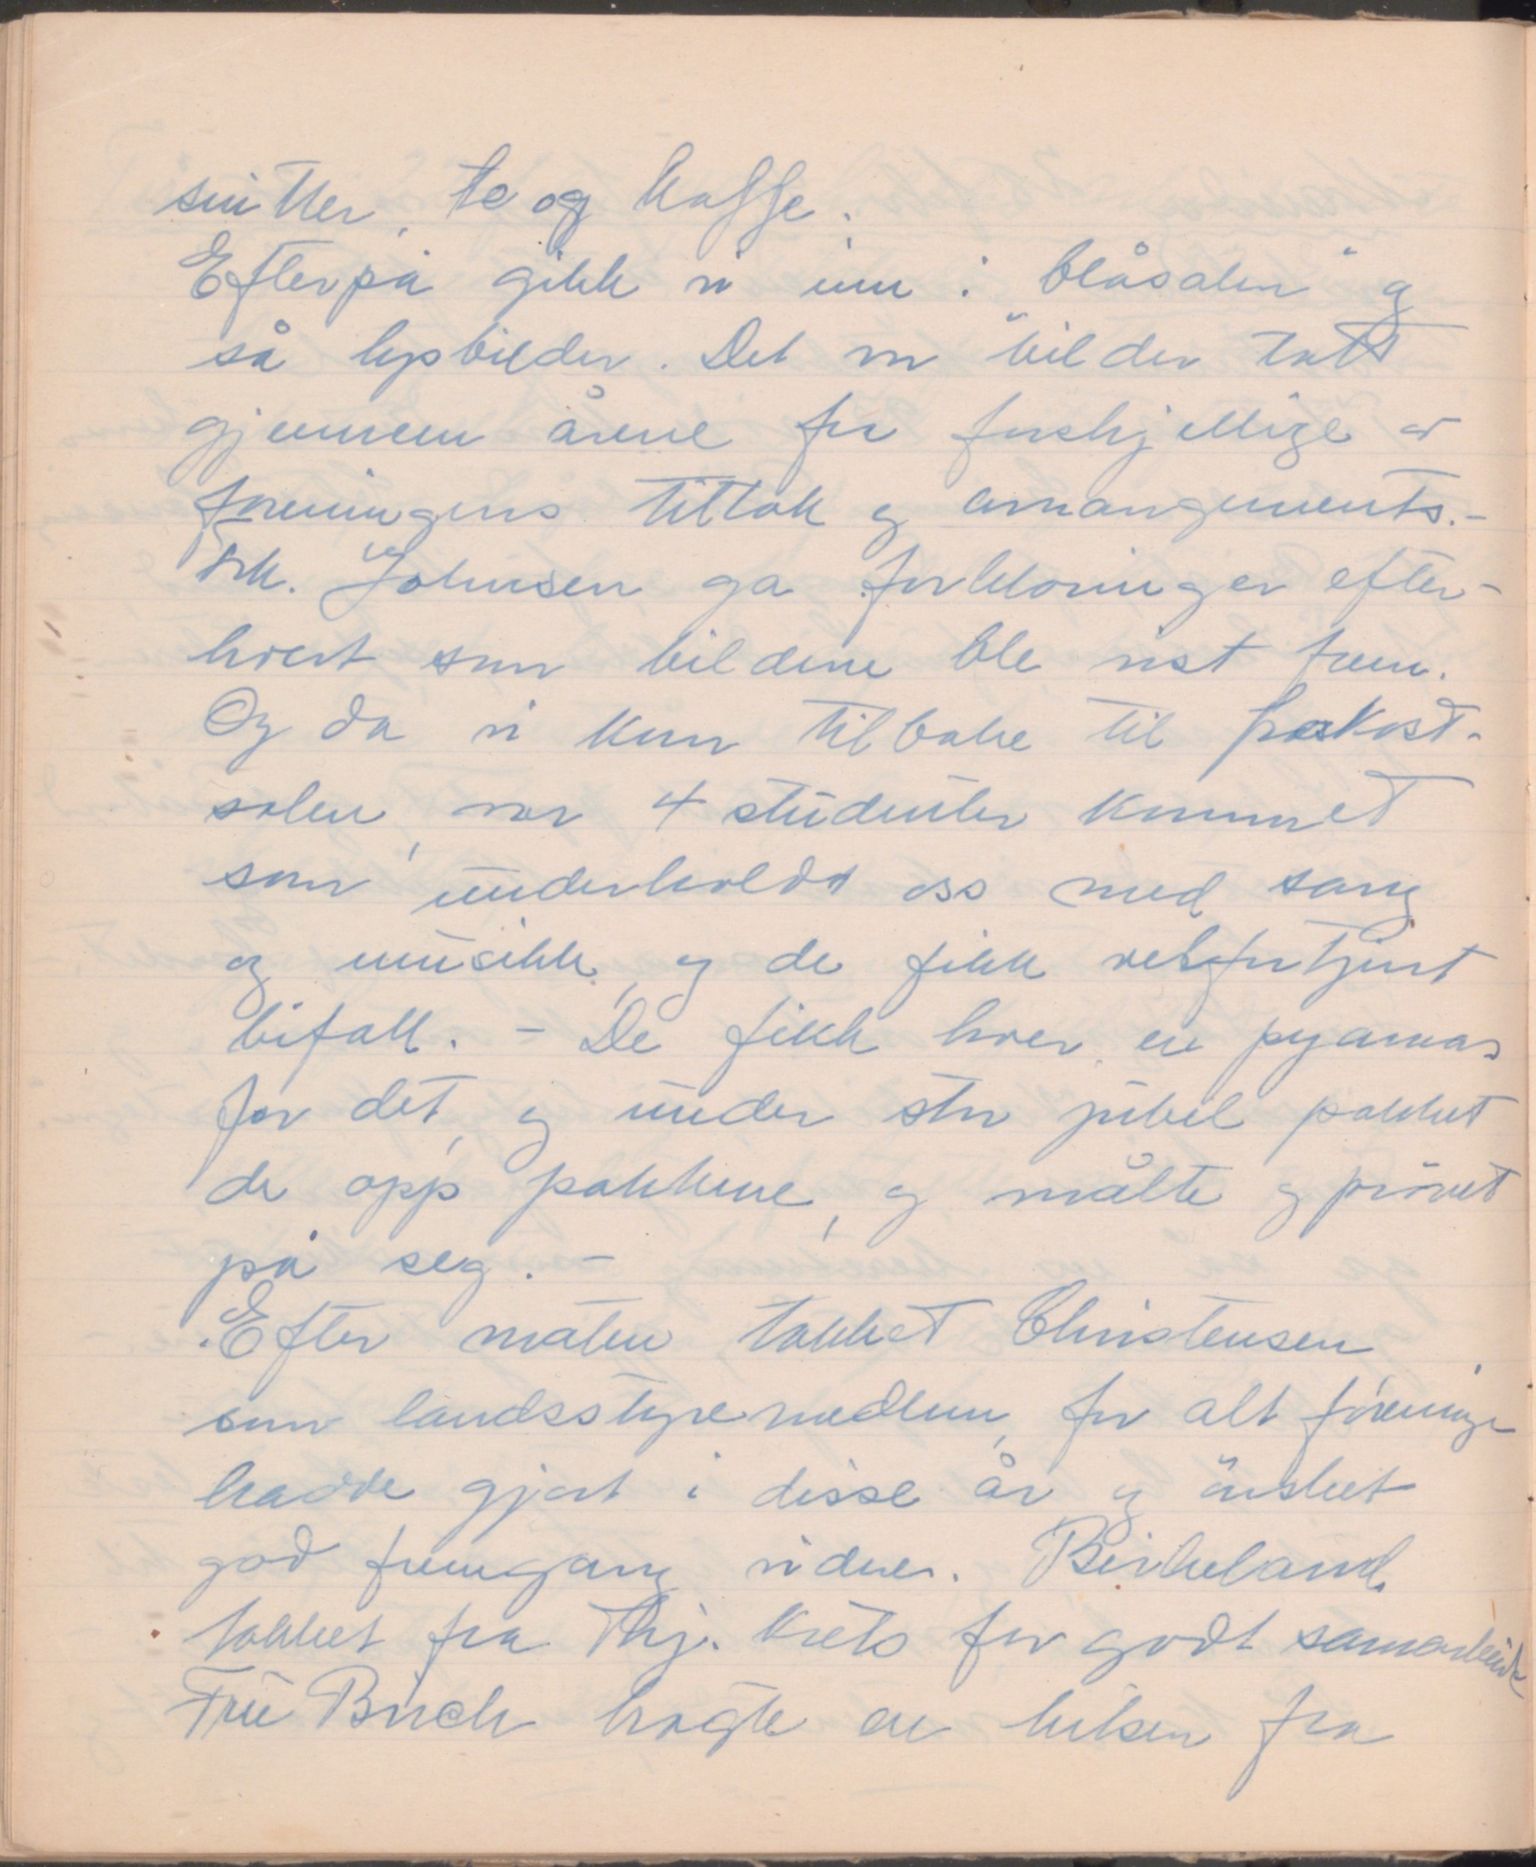 snitter, te og kaffe.
Efterpå gikk vi inn i "blåsalen" og
så lysbilder. Det var bilder tatt
gjennem årene fra forskjellige av
foreningens tiltak og arrangements.-
Frk. Johnsen ga forklaringer efter-
hvert som bildene ble vist frem.
Og da vi kom tilbake til frokost-
salen, var 4 studenter kommet
som underholdt oss med sang
og musikk, og de fikk velfortjent
bifall. - De fikk hver en pyamas
for det, og under stor jubel pakket
de opp pakkene, og målte og prövet
på seg. -
Efter maten takket Christensen
som landsstyremedlem, for alt foreningen
hadde gjort i disse år og önsket
god fremgang videre. Birkeland
takket fra Thj. krets for godt samarbeide
Fru Buch bragte en hilsen fra